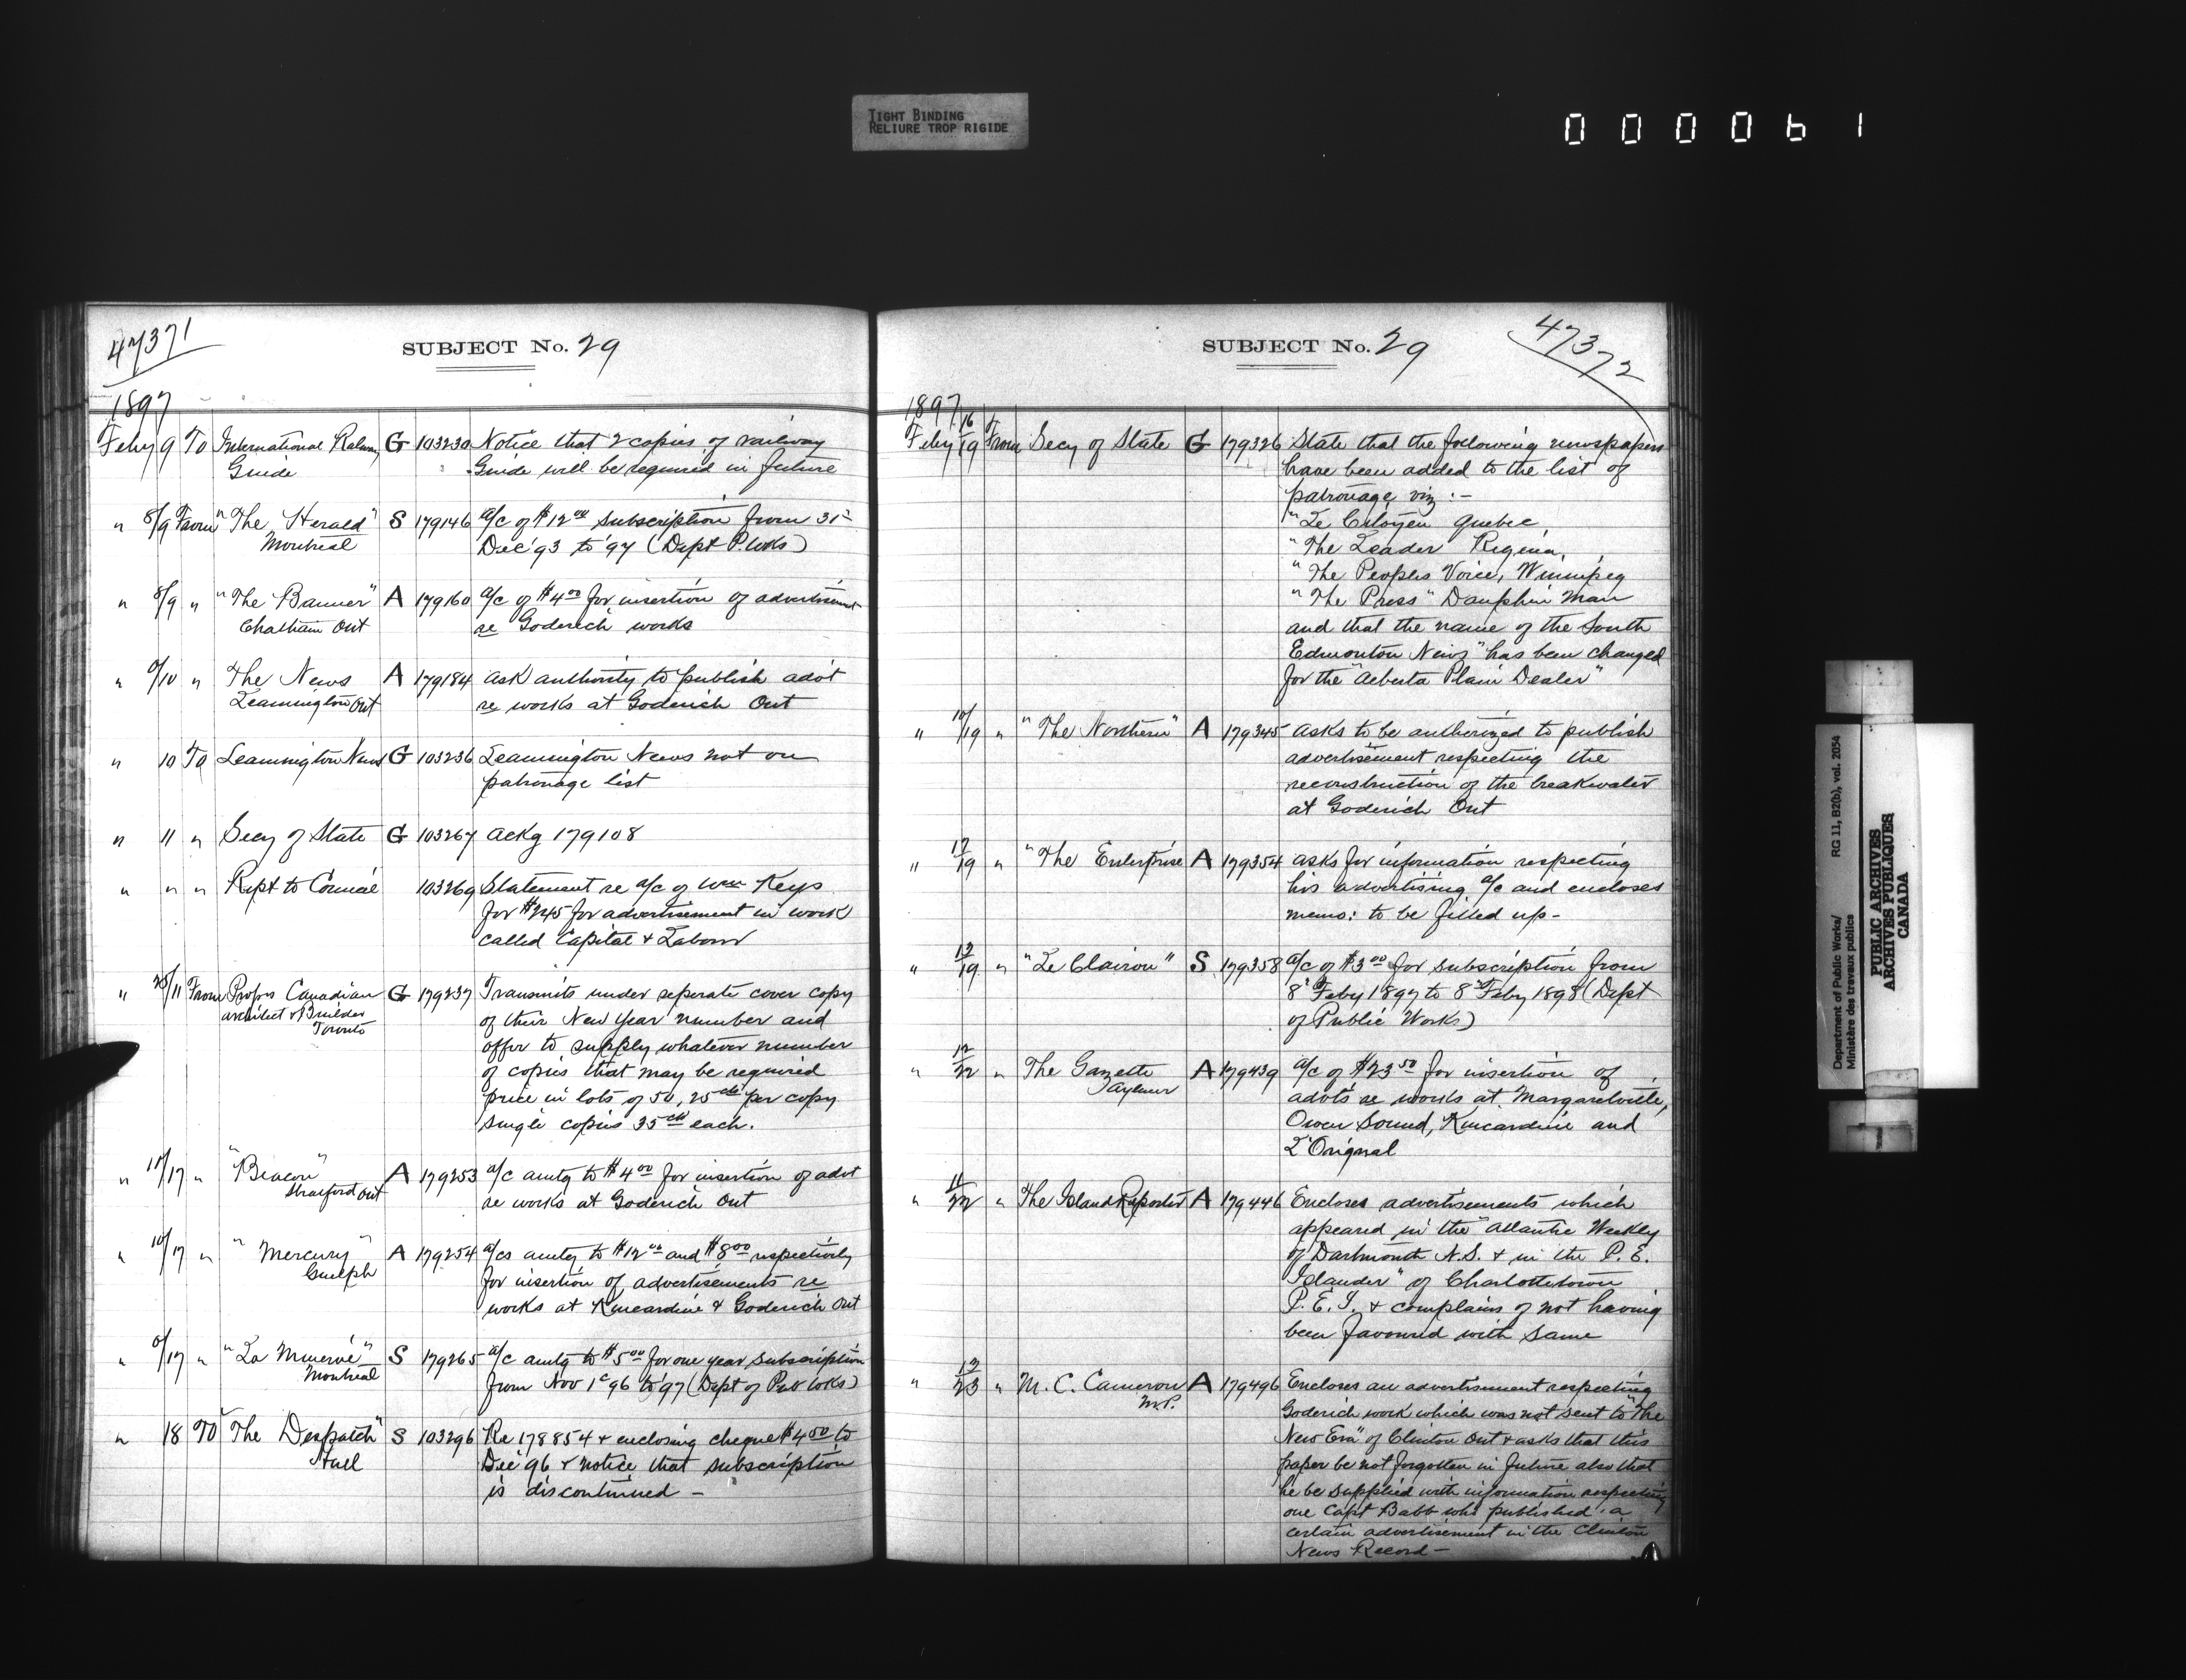 TIGHT BINDING
RELIURE TROP RIGIDE
0 0 0 0 6 1
47371
SUBJECT No. 29
1897
Feby 9 To International Railway G 103230 Notice that 2 copies of railway
Guide Guide will be required in future
" 8/9 From "The Herald" S 179146 a/c of $12 00 subscription from 31st
Montreal Dec '93 to '97 (Dept P. Wks)
" 8/9 " "The Banner" A 179160 a/c of $4 00 for insertion of advertisement
Chatham Ont re Goderich works
" 9/10 " The News A 179184 ask authority to publish advt
Leamington Ont re works at Goderich Ont
" 10 To Leamington News G 103236 Leamington News not on
patronage list
" 11 " Secy of State G 103267 ackg 179108
" " " Rept to Council 103269 Statement re a/c of Wm Keys
for $245 for advertisement in work
called Capital & Labour
" 25/11 From Proprs Canadian G 179237 Transmits under seperate cover copy
architect & Builder of their New Year number and
Toronto offer to supply whatever number
of copies that may be required
price in lots of 50, 25 cts per copy
single copies 35 cts each.
" 11/17 " "Beacon" A 179253 a/c amtg to $4 00 for insertion of advt
Stratford Ont re works at Goderich Ont
" 10/17 " "Mercury" A 179254 a/cs amtg to $12 00 and $8 00 respectively
Guelph for insertion of advertisements re
works at Kincardine & Goderich Ont
" /17 " "La Minerve" S 179265 a/c amtg to $5 00 for one year subscription
Montreal from Nov 1st 96 to '97 (Dept of Pub Wks)
" 18 To "The Despatch" S 103296 Re 178854 & enclosing cheque $4 50 to
Hull Dec '96 & notice that subscription
is discontinued -
SUBJECT No. 29
47372
1897
Feby 16/19 From Secy of State G 179326 State that the following newspapers
have been added to the list of
patronage viz :-
"Le Citoyen Quebec,
"The Leader Regina,
"The Peoples Voice, Winnipeg
"The Press" Dauphin Man
and that the name of the South
Edmonton News" has been changed
for the "Alberta Plain Dealer"
" 10/19 " "The Northern" A 179345 asks to be authorized to publish
advertisement respecting the
reconstruction of the breakwater
at Goderich Ont
" 17/19 " "The Enterprise A 179354 asks for information respecting
his advertising a/c and encloses
memo: to be filled up -
" 12/19 " "Le Clairon" S 179358 a/c of $3 00 for subscription from
8th Feby 1897 to 8th Feby 1898 (Dept
of Public Works)
" 12/22 " The Gazette A 179439 a/c of $23 50 for insertion of
Aylmer advts re works at Margaretville,
Owen Sound, Kincardine and
L'Orignal
" 11/22 " The Island Reporter A 179446 Encloses advertisements which
appeared in the "Atlantic Weekly
of Dartmouth N.S. & in the P. E.
Islander" of Charlottetown
P. E. I. & complains of not having
been favoured with same
" 12/23 " M. C. Cameron A 179496 Encloses an advertisement respecting
M.P. Goderich work which was not sent to "The
New Era" of Clinton Ont & asks that this
paper be not forgotten in future also that
he be supplied with information respecting
one Capt Babb who published a
certain advertisement in the Clinton
News Record -
Department of Public Works/
Ministère des travaux publics
RG 11, B2(b), vol. 2054
PUBLIC ARCHIVES
ARCHIVES PUBLIQUES
CANADA